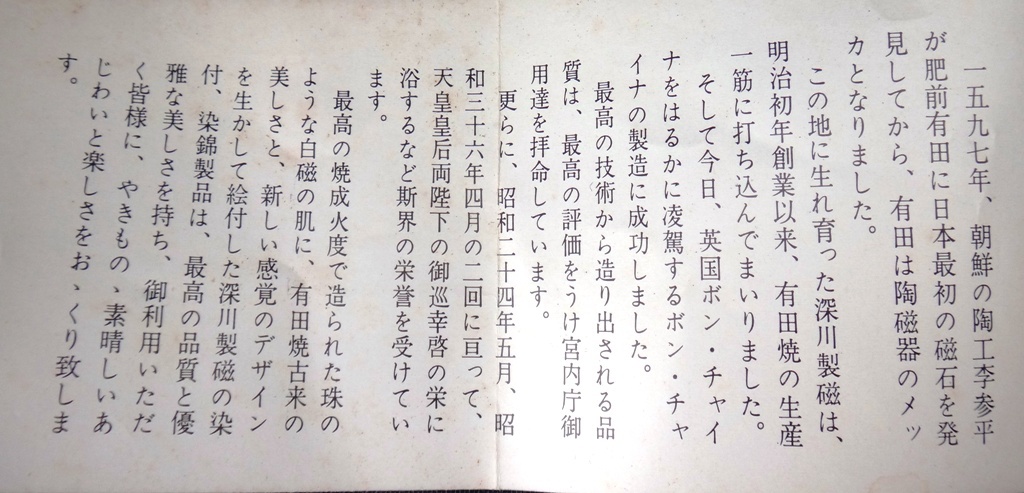 一五九七年、朝鮮の陶工李参平
が肥前有田に日本最初の磁石を発
見してから、有田は陶磁器のメッ
カとなりました。
この地に生れ育った深川製磁は、
明治初年創業以来、有田焼の生産
一筋に打ち込んでまいりました。
そして今日、英国ボン・チャイ
ナをはるかに凌駕するボン・チャ
イナの製造に成功しました。
最高の技術から造り出される品
質は、最高の評価をうけ宮内庁御
用達を拝命しています。
更らに、昭和二十四年五月、昭
和三十六年四月の二回に亘って、
天皇皇后両陛下の御巡幸啓の栄に
浴するなど斯界の栄誉を受けてい
ます。
最高の焼成火度で造られた珠の
ような白磁の肌に、有田焼古来の
美しさと、新しい感覚のデザイン
を生かして絵付した深川製磁の染
付、染錦製品は、最高の品質と優
雅な美しさを持ち、御利用いただ
く皆様に、やきもの、素晴しいあ
じわいと楽しさをおゝくり致しま
す。